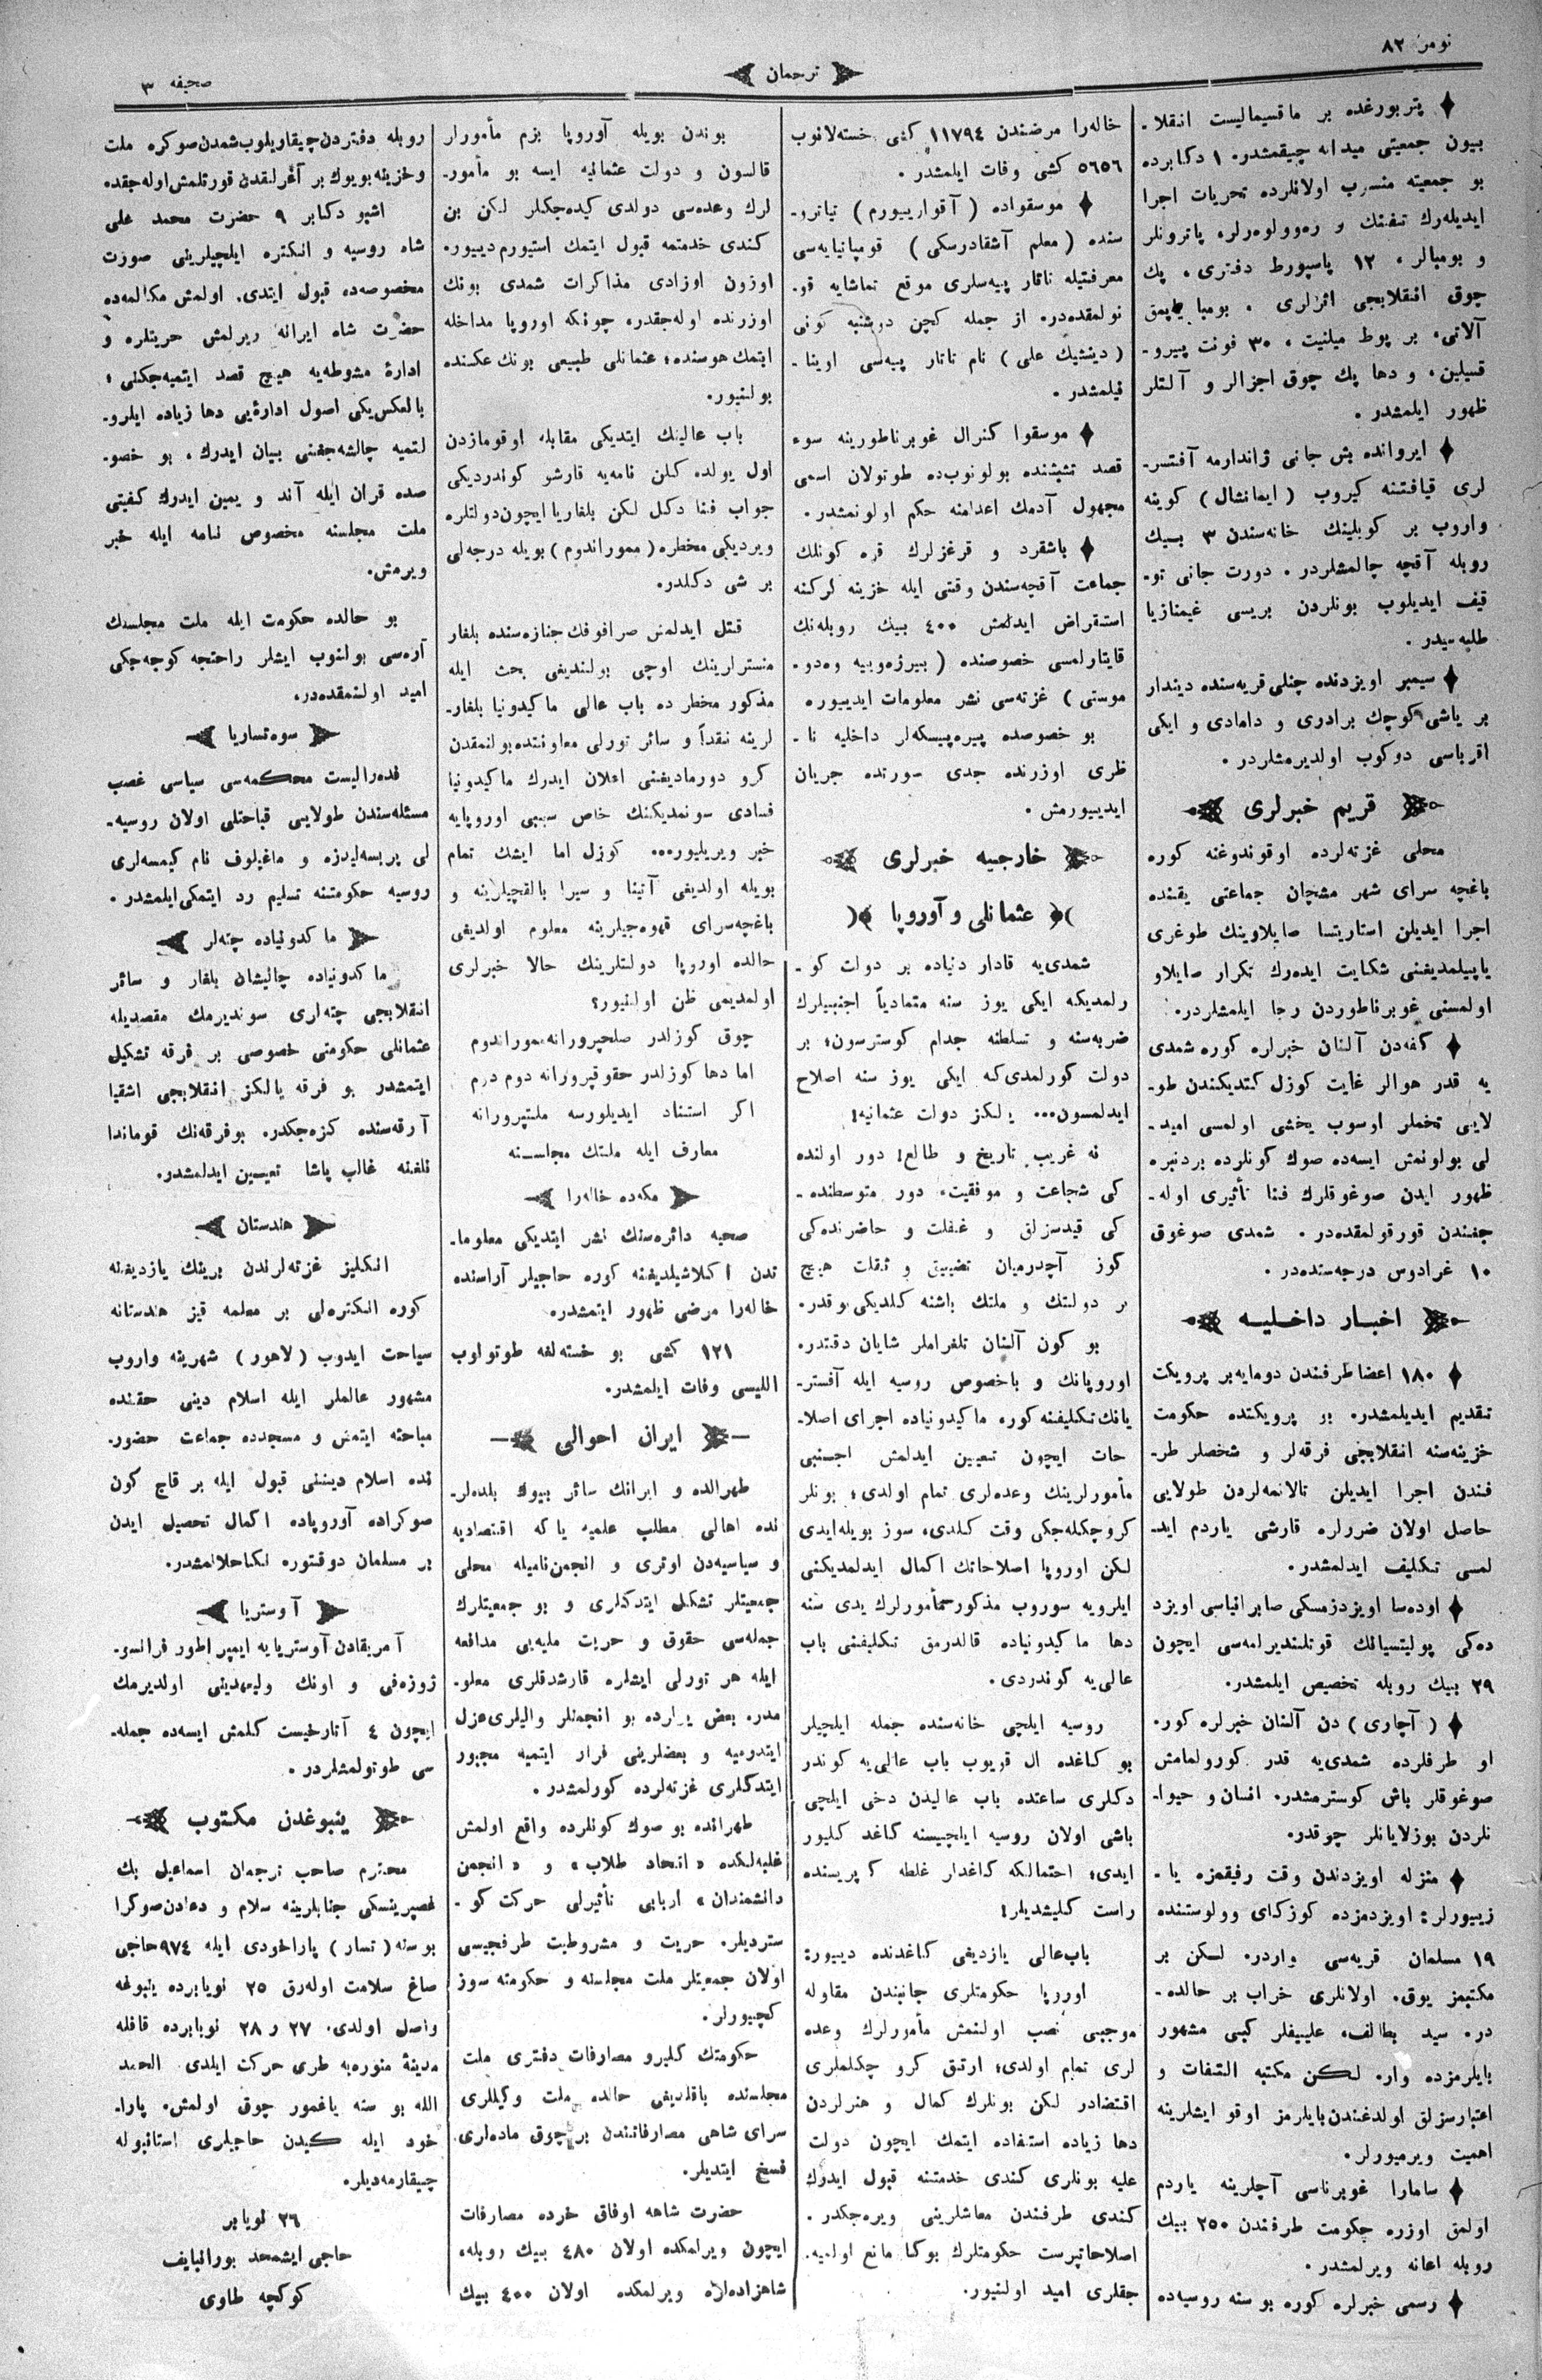 نومر ٨٢
ترجمان
صحیفه ٣
پتربورغده بر ماقسیمالیست انقلا-
بیون جمعیتی میدانه چیقمشدر. ١ دکابرده
بو جمعیته منسوب اولانلرده تحریات اجرا
ایدیله‌رك تفتك و ره‌وولوه‌رلر، پاترونلر
و بومبالر، ١٢ پاسپورط دفتری، پك
چوق انقلابجی اثرلری ، بومبا یاپمق
آلاتی، بر پوط میلنیت، ٣٠ فونت پیرو-
قسیلین، و دها پك چوق اجزالر و آلتلر
ظهور ایلمشدر .
ایروانده بش جانی ژاندارمه آفتسر-
لری قیافتنه کیروب (ایمانشال) کوینه
واروب بر کویلینك خانه‌سندن ٣ بیك
روبله آقچه چالمشلردر . دورت جانی تو-
قیف ایدیلوب بونلردن بریسی غیمنازیا
طلبه‌سیدر .
سیمبر اویزدنده چنلی قریه‌سنده دیندار
بر یاشی کوچك برادری و دامادی و ایکی
اقرباسی دوکوب اولدیرمشلردر .
قریم خبرلری
محلی غزته‌لرده اوقوندوغنه کوره
باغچه سرای شهر مشچان جماعتی یقنده
اجرا ایدیلن استاریتسا صایلاوینك طوغری
یاپیلمدیغنی شکایت ایده‌رك تکرار صایلاو
اولمسنی غوبرناطوردن رجا ایلمشلردر.
کفه‌دن آلنان خبرلره کوره شمدی
یه قدر هوالر غایت کوزل کتدیکندن طو-
لایی تخملر اوسوب یخشی اولمسی امید-
لی بولونمش ایسه‌ده صوك کونلرده بردنبره
ظهور ایدن صوغوقلرك فنا تأثیری اوله-
جغندن قورقولمقده‌در . شمدی صوغوق
١٠ غرادوس درجه‌سنده‌در .
اخبار داخلیه
١٨٠ اعضا طرفندن دومایه بر پرویکت
تقدیم ایدیلمشدر. بو پرویکتده حکومت
خزینه‌سنه انقلابچی فرقه‌لر و شخصلر طر-
فندن اجرا ایدیلن تالانمه‌لردن طولایی
حاصل اولان ضررلره قارشی یاردم اید-
لمسی تکلیف ایدلمشدر.
اوده‌سا اویزدزمسکی صابرانیاسی اویزد
ده‌کی پولیتسیانك قوتلندیرلمه‌سی ایچون
٢٩ بیك روبله تخصیص ایلمشدر.
(آچاری) دن آلنان خبرلره کور.
او طرفلرده شمدی‌یه قدر کورولمامش
صوغوقلر باش کوسترمشدر. انسان و حیوا-
نلردن بوزلایانلر چوقدر.
منزله اویزدندن وقت رفیقمزه یا-
زیبورلر: اویزدمزده کوزکای وولوستنده
١٩ مسلمان قریه‌سی واردر. لکن بر
مکتبمز یوق. اولانلری خراب بر حالده-
در. سید بطالف، علییفلر کبی مشهور
بایلرمزده وار. لکن مکتبه التفات و
اعتبارسزلق اولدغندن بایلرمز اوقو ایشلرینه
اهمیت ویرمیورلر.
سامارا غوبرناسی آچلرینه یاردم
اولمق اوزره حکومت طرفندن ٢٥٠ بیك
روبله اعانه ویرلمشدر .
رسمی خبرلره کوره بو سنه روسیه‌ده
خاله‌را مرضندن ١١٧٩٤ کشی خسته‌لانوب
٥٦٥٦ کشی وفات ایلمشدر .
موسقواده (آقوارییورم) تیاترو-
سنده (معلم آشقادرسکی) قومپانیایه‌سی
معرفتیله تاتار پیه‌سلری موقع تماشایه قو-
نولمقده‌در. از جمله کچن دوشنبه کونی
(دینشیك علی) نام تاتار پیه‌سی اوینا-
قیلمشدر .
موسقوا کنرال غوبرناطورینه سوء
قصد تشبثنده بولونوب‌ده طوتولان اسمی
مجهول آدمك اعدامنه حکم اولونمشدر.
باشقرد و قرغزلرك قره کونلك
جماعت آقچه‌سندن وقتی ایله خزینه لرکنه
استقراض ایدلمش ٤٠٠ بیك روبله‌نك
قایتارلمسی خصوصنده (بیرژه‌وییه وه‌دو-
موستی) غزته‌سی نشر معلومات ایدییوره
بو خصوصده پیره‌پیسکه‌لر داخلیه نا-
ظری اوزرنده جدی سورنده جریان
ایدییورمش .
خارجیه خبرلری
عثمانلی و آوروپا
شمدی‌یه قادار دنیاده بر دولت کو-
رلمدیکه ایکی یوز سنه متمادیاً اجنبیلرك
ضربه‌سنه و تسلطنه جدام کوسترسون؛ بر
دولت کورلمدی‌که ایکی یوز سنه اصلاح
ایدلمسون... یالکز دولت عثمانیه!
نه غریب تاریخ و طالع! دور اولنده
کی شجاعت و موفقیت، دور متوسطنده-
کی قیدسزلق و غفلت و حاضرنده‌کی
کوز آچدرمیان تضییق و ثقلت هیچ
بر دولتك و ملتك باشنه کلدیکی یوقدر.
بو کون آلنان تلغراملر شایان دقتدر.
اوروپانك و باخصوص روسیه ایله آفستر-
یانك تکلیفنه کوره ماکیدونیاده اجرای اصلا-
حات ایچون تعیین ایدلمش اجنبی
مأمورلرینك وعده‌لری تمام اولدی؛ بونلر
کروچکله‌جکی وقت کلدی، سوز بویله‌ایدی
لکن اوروپا اصلاحاتك اکمال ایدلمدیکنی
ایلرویه سوروب مذکور مأمورلرك یدی سنه
دها ماکیدونیاده قالدرمق تکلیفنی باب
عالی‌یه کوندردی.
روسیه ایلچی خانه‌سنده جمله ایلچیلر
بو کاغده ال قویوب باب عالی‌یه کوندر
دکلری ساعتده باب عالیدن دخی ایلچی
باشی اولان روسیه ایلچیسنه کاغد کلیور
ایدی؛ احتمالکه کاغدلر غلطه کوپریسنده
راست کلیشدیلر!
باب‌عالی یازدیغی کاغدنده دییور:
اوروپا حکومتلری جانبندن مقاوله
موجبی نصب اولنمش مأمورلرك وعده
لری تمام اولدی؛ ارتق کرو چکلملری
اقتضادر لکن بونلرك کمال و هنرلردن
دها زیاده استفاده ایتمك ایچون دولت
علیه بونلری کندی خدمتنه قبول ایدرك
کندی طرفندن معاشلرینی ویره‌جکدر .
اصلاحاتپرست حکومتلرك بوکا مانع اولمیه.
جقلری امید اولنیور.
بوندن بویله آوروپا بزم مأمورلر
قالسون و دولت عثمانیه ایسه بو مأمور-
لرك وعده‌سی دولدی کیده‌جکلر لکن بن
کندی خدمتمه قبول ایتمك استیورم دییور.
اوزون اوزادی مذاکرات شمدی بونك
اوزرنده اوله‌جقدر، چونکه اوروپا مداخله
ایتمك هوسنده؛ عثمانلی طبیعی بونك عکسنده
بولنیور.
باب عالینك ایتدیکی مقابله اوقومازدن
اول یولده کلن نامه‌یه قارشو کوندردیکی
جواب فنا دکل لکن بلغاریا ایچون دولتلره
ویردیکی مخطره (مموراندوم) بویله درجه‌لی
بر شی دکلدر.
قتل ایدلمش صرافوفك جنازه‌سنده بلغار
منسترلرینك اوچی بولندیغی بحث ایله
مذکور مخطر ده باب عالی ماکیدونیا بلغار-
لرینه نقداً و سائر تورلی معاونتده بولنمقدن
کرو دورمادیغنی اعلان ایدرك ماکیدونیا
فسادی سونمدیکنك خاص سببی اوروپایه
خبر ویریلیور... کوزل اما ایشك تمام
بویله اولدیغی آتینا و سیرا بالقچیلرینه و
باغچه‌سرای قهوه‌جیلرینه معلوم اولدیغی
حالده اوروپا دولتلرینك حالا خبرلری
اولمدیمی ظن اولنیور؟
چوق کوزلدر صلحپرورانه مموراندوم
اما دها کوزلدر حقوقپرورانه دوم درم
اکر استناد ایدیلورسه ملتپرورانه
معارف ایله ملتك مجلسنه
مکه‌ده خاله‌را
صحیه دائره‌سنك نشر ایتدیکی معلوما-
تدن اکلاشیلدیغنه کوره حاجیلر آراسنده
خاله‌را مرضی ظهور ایتمشدر.
١٢١ کشی بو خسته‌لغه طوتولوب
اللیسی وفات ایلمشدر.
ایران احوالی
طهرانده و ایرانك سائر بیوك بلده‌لر-
نده اهالی مطلب علمیه یاکه اقتصادیه
و سیاسیه‌دن اوتری و انجمن نامیله محلی
جمعیتلر تشکل ایتدکلری و بو جمعیتلرك
جمله‌سی حقوق و حریت ملیه‌یی مدافعه
ایله هر تورلی ایشلره قارشدقلری معلو-
مدر. بعض یرلرده بو انجمنلر والیلری عزل
ایتدرمیه و بعضلرینی فرار ایتمیه مجبور
ایتدکلری غزته‌لرده کورلمشدر.
طهرانده بو صوك کونلرده واقع اولمش
غلبه‌لکده «اتحاد طلاب» و «انجمن
دانشمندان» اربابی تأثیرلی حرکت کو-
ستردیلر. حریت و مشروطیت طرفجیسی
اولان جمعیتلر ملت مجلسنه و حکومته سوز
کچیورلر.
حکومتك کلیرو مصارفات دفتری ملت
مجلسنده باقلدیغی حالده ملت وکیللری
سرای شاهی مصارفاتندن بر چوق ماده‌لری
فسخ ایتدیلر.
حضرت شاهه اوفاق خرده مصارفات
ایچون ویرلمکده اولان ٤٨٠ بیك روبله،
شاهزاده‌لره ویرلمکده اولان ٤٠٠ بیك
روبله دفتردن چیقاریلوب شمدن‌صوکره ملت
و خزینه بویوك بر آغرلقدن قورتلمش اوله‌جقدر
اشبو دکابر ٩ حضرت محمد علی
شاه روسیه و انکلتره ایلچیلرینی صورت
مخصوصه‌ده قبول ایتدی. اولمش مکالمه‌ده
حضرت شاه ایرانه ویرلمش حریتلره و
ادارۀ مشروطه‌یه هیچ قصد ایتمیه‌جکنی؛
بالعکس یکی اصول اداره‌یی دها زیاده ایلرو-
لتمیه چالشه‌جغنی بیان ایدرك، بو خصو-
صده قران ایله آند و یمین ایدرك کفیتی
ملت مجلسنه مخصوص نامه ایله خبر
ویرمش.
بو حالده حکومت ایله ملت مجلسنك
آره‌سی بولنوب ایشلر راحتجه کوچه‌جکی
امید اولنمقده‌در.
سوه‌تساریا
فده‌رالیست محکمه‌سی سیاسی غصب
مسئله‌سندن طولایی قباحتلی اولان روسیه-
لی پریسه‌لیدزه و ماغیلوف نام کیمسه‌لری
روسیه حکومتنه تسلیم رد ایتمکی ایلمشدر.
ماکدونیاده چته‌لر
ماکدونیاده چالیشان بلغار و سائر
انقلابجی چته‌لری سوندیرمك مقصدیله
عثمانلی حکومتی خصوصی بر فرقه تشکیل
ایتمشدر بو فرقه یالکز انقلابجی اشقیا
آرقه‌سنده کزه‌جکدر. بوفرقه‌نك قوماندا
نلغنه غالب پاشا تعیین ایدلمشدر.
هندستان
انکلیز غزته‌لرندن برینك یازدیغنه
کوره انکلتره‌لی بر معلمه قیز هندستانه
سیاحت ایدوب (لاهور) شهرینه واروب
مشهور عالملر ایله اسلام دینی حقنده
مباحثه ایتمش و مسجدده جماعت حضور-
نده اسلام دیننی قبول ایله بر قاچ کون
صوکراده آوروپاده اکمال تحصیل ایدن
بر مسلمان دوقتوره نکاحلانمشدر.
آوستریا
آمریقادن آوستریایه ایمپراطور فرانسو-
ژوزه‌فی و اونك ولیعهدینی اولدیرمك
ایچون ٤ آنارخیست کلمش ایسه‌ده جمله-
سی طوتولمشلردر .
ینبوغدن مکتوب
محترم صاحب ترجمان اسماعیل بك
غصپرینسکی جنابلرینه سلام و دعادن صوکرا
بو سنه (تسار) پاراخودی ایله ٩٧٤ حاجی
صاغ سلامت اوله‌رق ٢٥ نویابرده ینبوغه
واصل اولدی. ٢٧ و ٢٨ نویابرده قافله
مدینۀ منوره‌یه طری حرکت ایلدی. الحمد
الله بو سنه یاغمور چوق اولمش. پارا-
خود ایله کیدن حاجیلری استانبوله
چیقارمه‌دیلر.
٢٦ نویابر
حاجی ایشمحمد بورانبایف
کوکچه طاوی